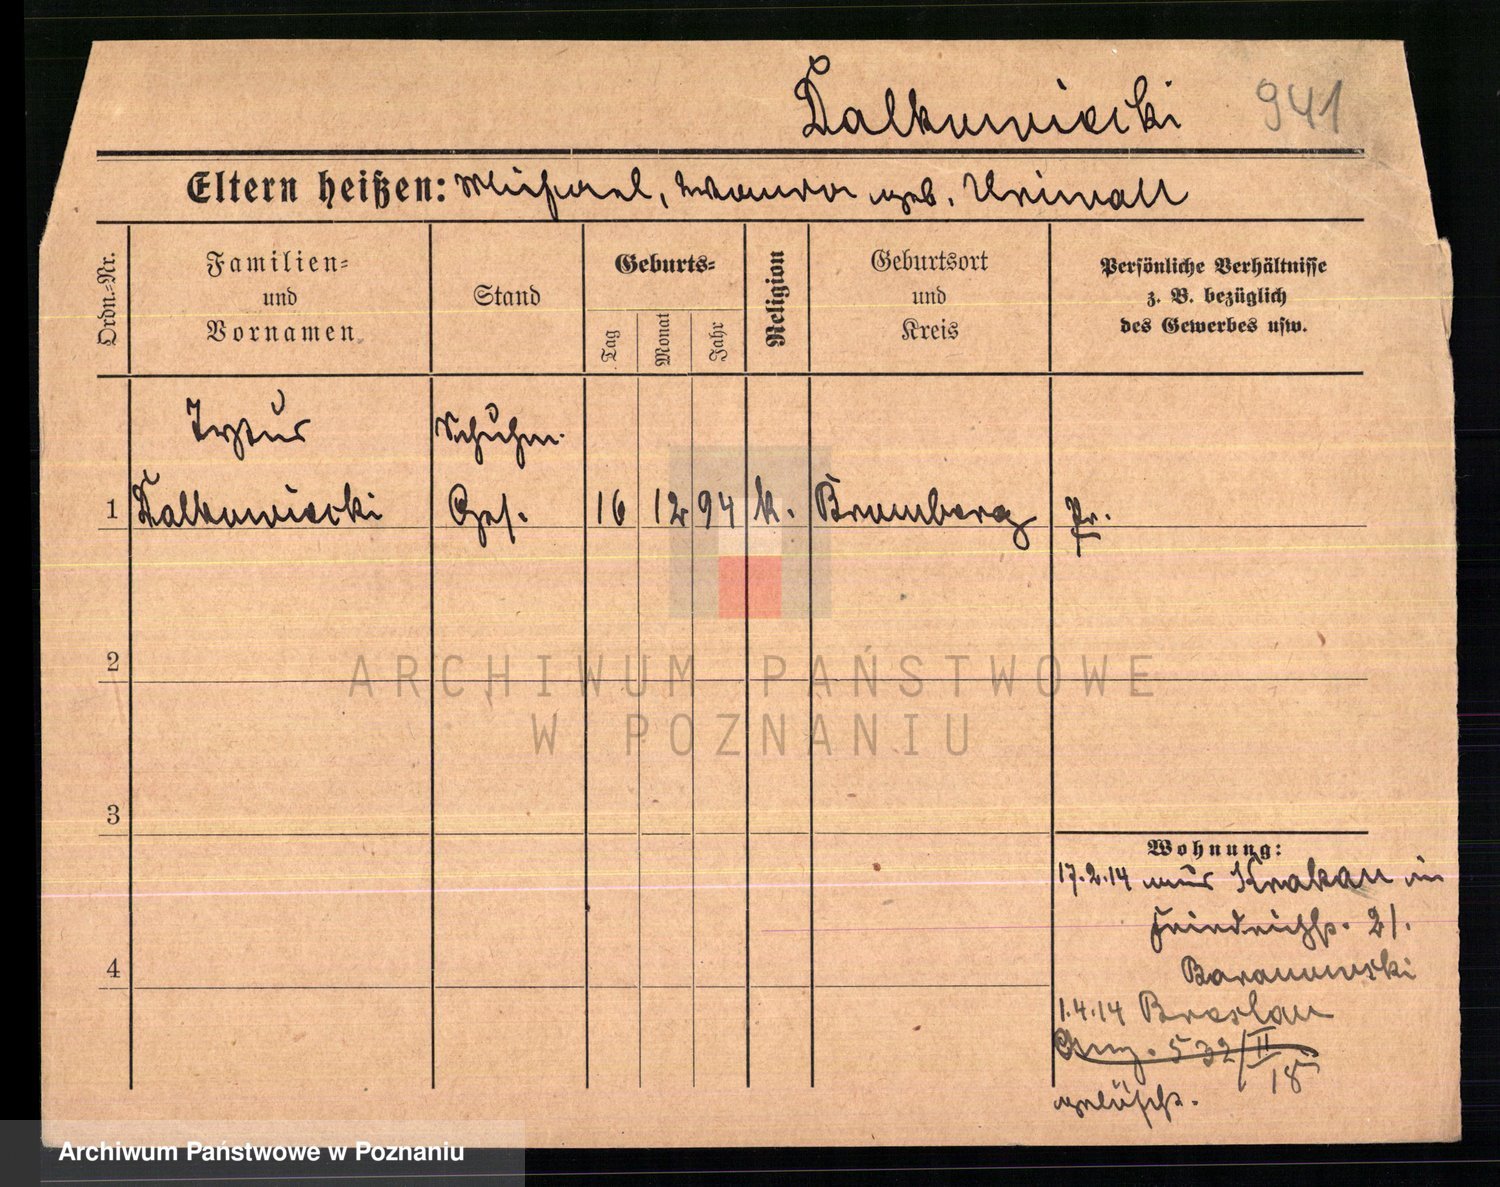 Dalkowiecki 941
Eltern heißen: Michael, geb.
Ordn.-Nr.
Familien-
und
Vornamen
Stand
Geburts-
Tag
Monat
Jahr
Religion
Geburtsort
und
Kreis
Persönliche Verhältnisse
z. B. bezüglich
des Gewerbes usw.
Schuhm.
1 Dalkowiecki Ges. 16 12 94 k. Bromberg Pr.
2
3
4
Wohnung:
17.2.14 aus Krakau in
Friedrichstr. 21.
Baranowski
1.4.14 Breslau
Ang. 532/II
15
gelöscht.
ARCHIWUM PAŃSTWOWE
W POZNANIU
Archiwum Państwowe w Poznaniu